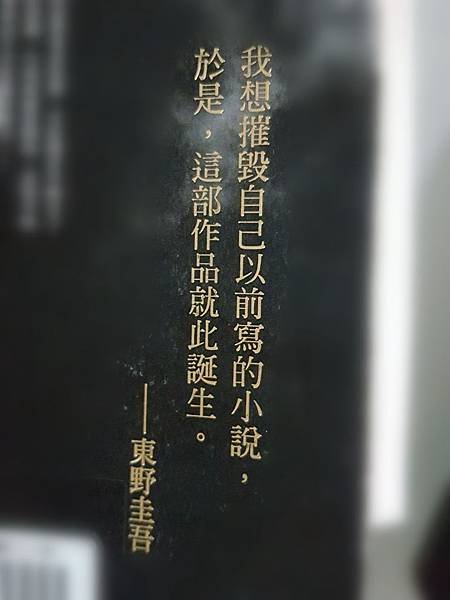 我想摧毀自己以前寫的小說，
於是，這部作品就此誕生。
——東野圭吾